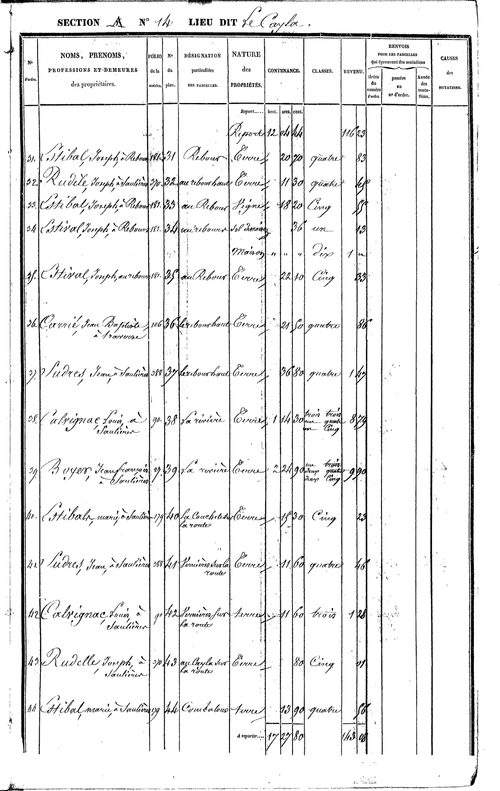 SECTION A N° 14 LIEU DIT Le Cayla.
N° d'ordre.
NOMS, PRENOMS, PROFESSIONS ET DEMEURES des propriétaires.
FOLIO de la matrice.
N° du plan.
DÉSIGNATION particulière DES PARCELLES.
NATURE des PROPRIÉTÉS.
CONTENANCE.
CLASSES.
REVENU.
RENVOIS POUR LES PARCELLES qui éprouvent des mutations
tirées du numéro d'ordre.
portées au n° d'ordre.
Année des mutations.
CAUSES des MUTATIONS.
Report..... hect. ares. cent.
Report 12 04 44 116 23
31. Estibal, Joseph, à Rebour 181 31 Rebour Terre 20 70 quatre 83
32. Rudèle, Joseph, à Saulières 170 32 au rebourhout Terre 11 30 quatre 45
33. Estibal, Joseph, à Rebour 181 33 au Rebour Vigne 18 20 Cinq 55
34. Estival, Joseph, à Rebour 181 34 au rebour Sol de maison 36 un 13
Maison " " " dix 1 "
35. Estival, Joseph, au rebour 181 35 au Rebour Terre 22 10 Cinq 33
36. Carrié, Jean Baptiste, à traverse 106 36 le rebourhout Terre 21 50 quatre 86
37. Ludres, Jean, à Saulières 288 37 le rebourhout Terre 36 80 quatre 1 47
38. Calvignac, Louis, à Saulières 90 38 La rivière Terre 1 14 30 trois quatre Cinq 8 79
39. Boyer, Jean françois, à Saulières 39 La rivière Terre 2 24 90 trois quatre Cinq 9 90
40. Estibal, marie, à Saulières 179 40 la route Terre 15 30 Cinq 23
41. Ludres, Jean, à Saulières 288 41 sur la route Terre 11 60 quatre 46
42. Calvignac, Louis, à Saulières 90 42 sur la route terre 11 60 trois 1 28
43. Rudelle, Joseph, à Saulières 170 43 au Cayla sur la route Terre 80 Cinq 01
44. Estibal, marie, à Saulières 179 44 Combalou terre 13 90 quatre 56
A reporter..... 17 27 80 143